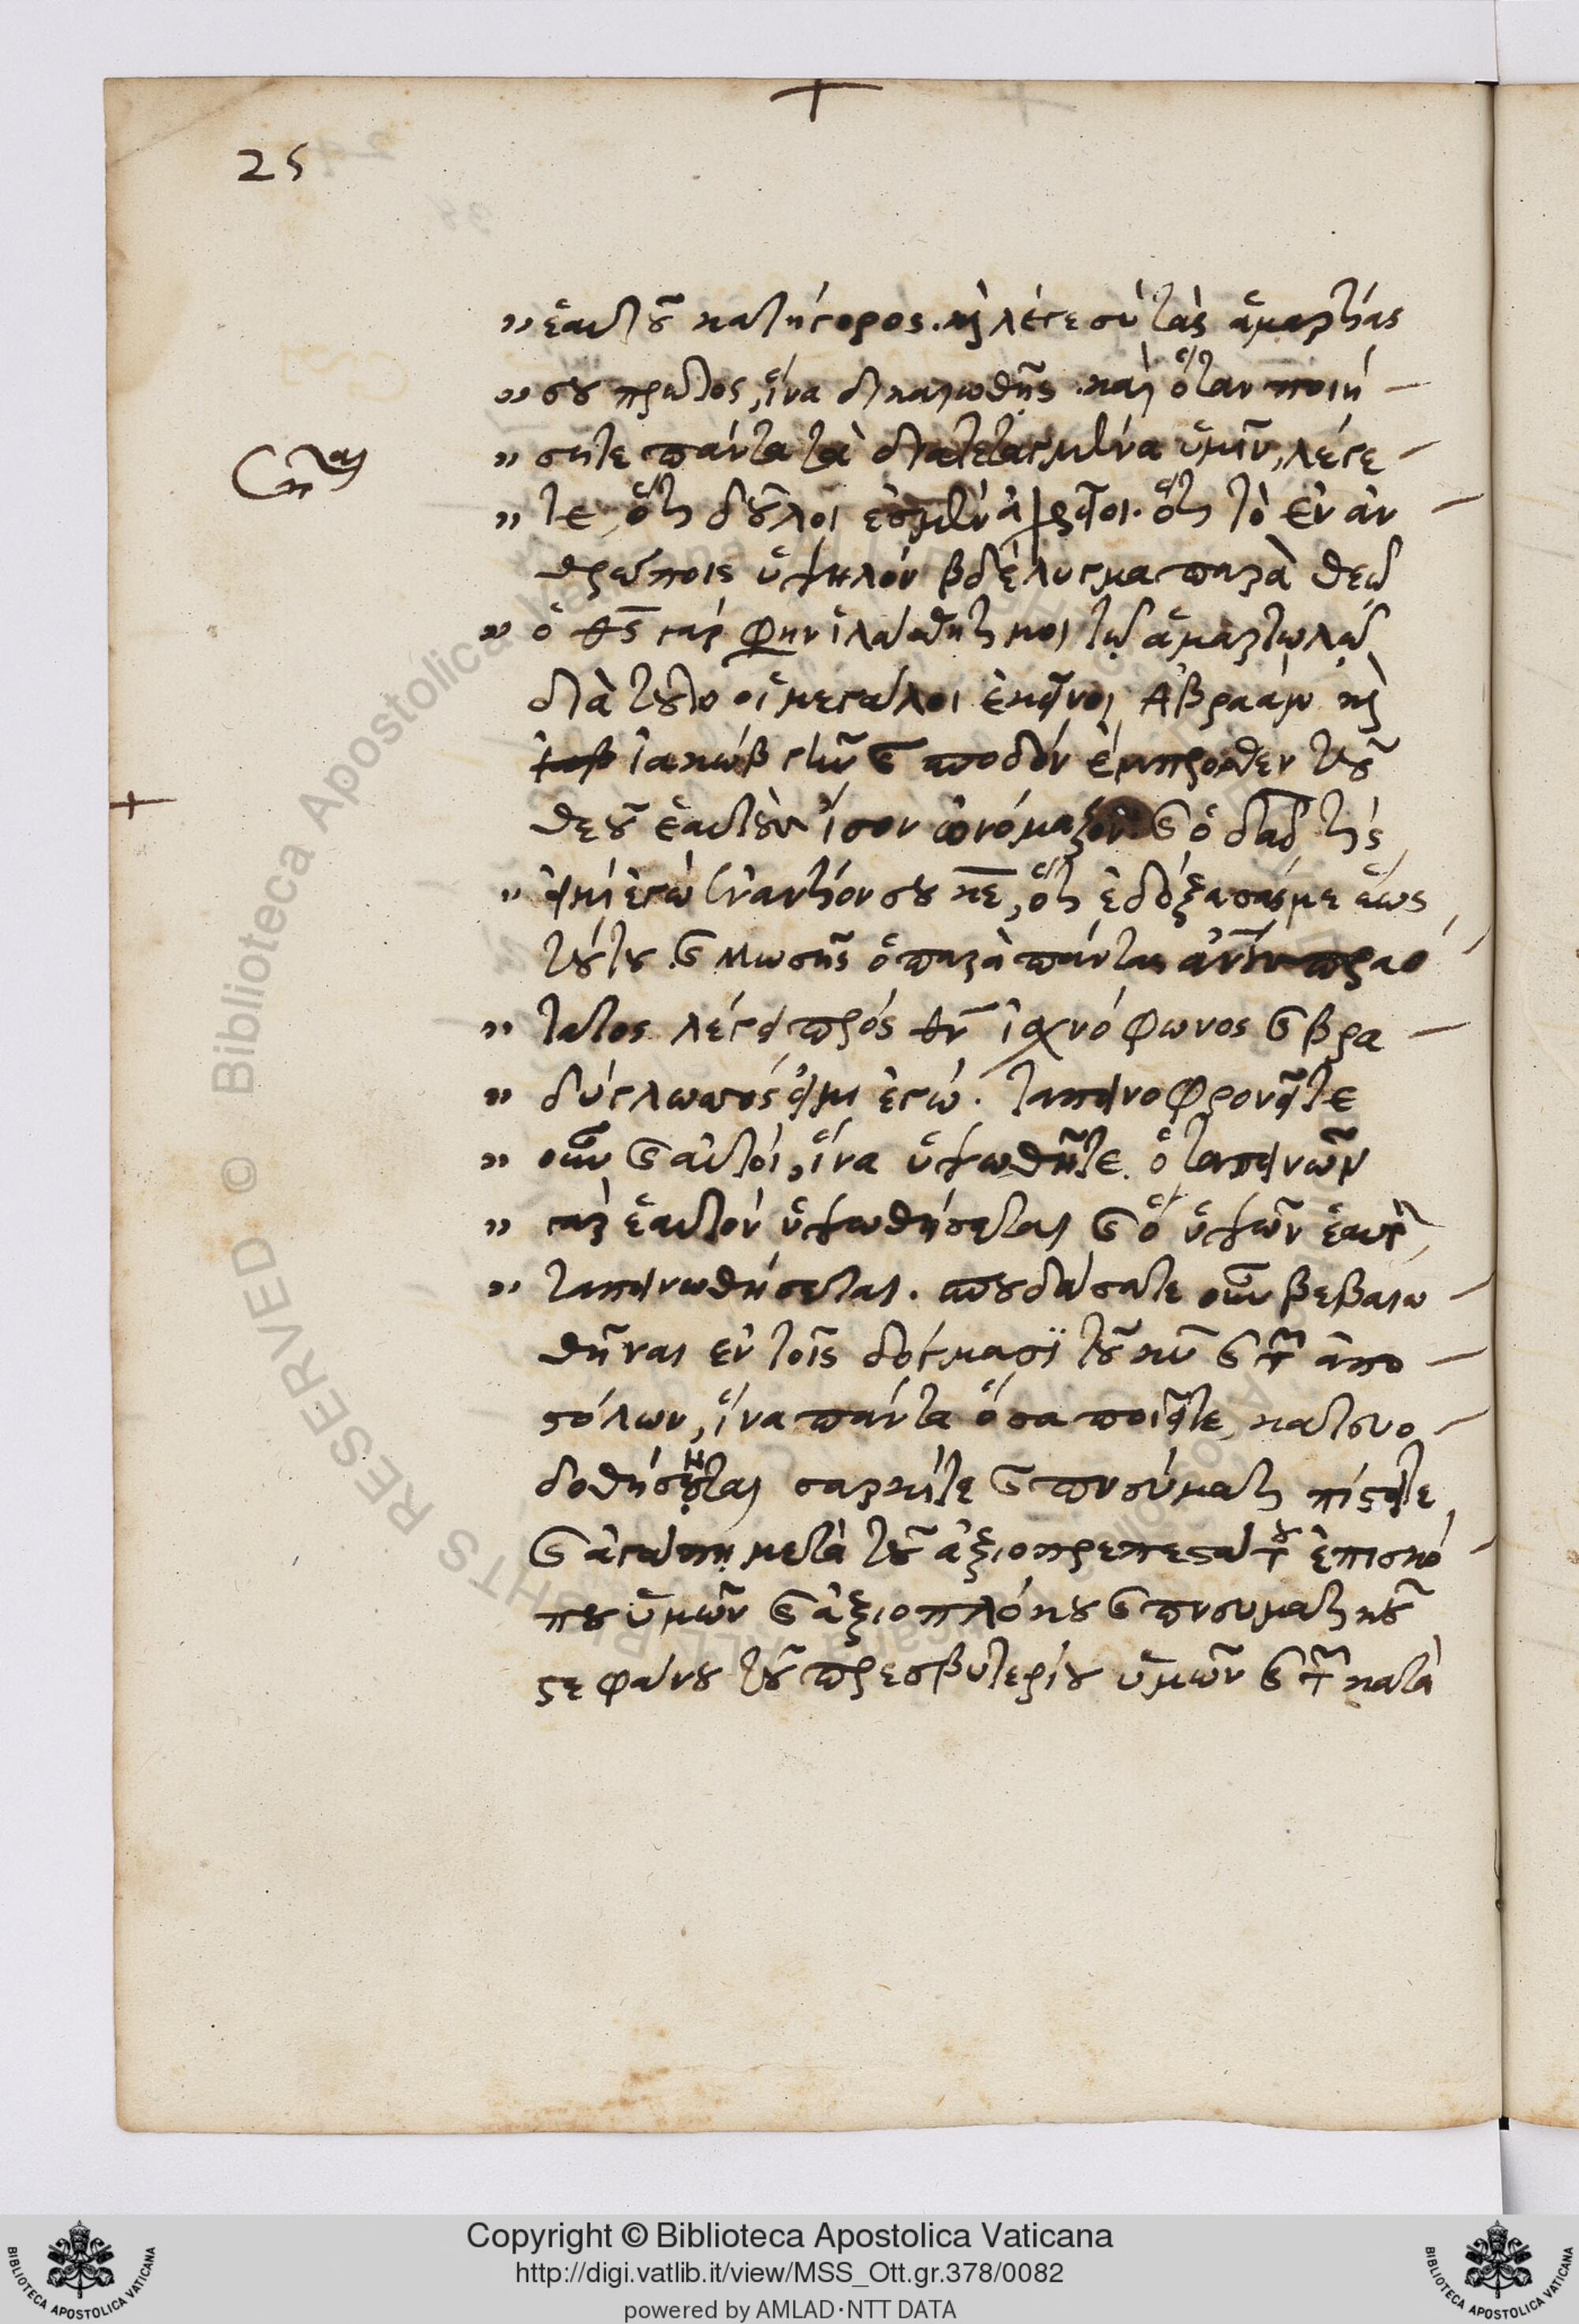 25
ἑαυτοῦ κατήγορος. καὶ λέγε σὺ τὰς ἁμαρτίας
σου πρῶτος, ἵνα δικαιωθῇς. καὶ ὅταν ποιή
σητε πάντα τὰ διατεταγμένα ὑμῖν, λέγε
τε, ὅτι δοῦλοι ἐσμὲν ἀχρεῖοι. ὅτι τὸ ἐν ἀν
θρώποις ὑψηλόν βδέλυγμα παρὰ θεῷ
ὁ θς γάρ φην ἱλάσθητι μοι τῷ ἁμαρτωλῷ
διὰ τοῦτο οἱ μεγάλοι ἐκεῖνοι Ἀβραάμ καὶ
ἰακώβ γῆν καὶ σποδόν ἔμπροσθεν τοῦ
θεοῦ ἑαυτοὺς ὠνόμαζον. καὶ ὁ δαδ τίς
εἰμί ἐγώ ἐναντίον σου κε, ὅτι ἐδόξασάς με ἕως
τούτου. καὶ Μωσῆς ὁ παρὰ πάντας πραό
τατος λέγει πρός θν ἰσχνόφωνος καὶ βρα
δύγλωσσός εἰμι ἐγώ. ταπεινοφρονεῖτε
οὖν καὶ αὐτοί, ἵνα ὑψωθῆτε. ὁ ταπεινῶν
γαρ ἑαυτόν ὑψωθήσεται καὶ ὁ ὑψῶν ἑαυτὸν
ταπεινωθήσεται. σπουδάσατε οὖν βεβαιω
θῆναι ἐν τοῖς δόγμασϊ τοῦ κυ καὶ τῶν ἀπο
στόλων, ἵνα πάντα ὅσα ποιεῖτε, κατευο
δοθήσηται σαρκίτε καὶ πνεύματι πίστει τε
καὶ ἀγάπῃ μετὰ τοῦ ἀξιοπρεπεστάτου ἐπισκό
που ὑμῶν καὶ ἀξιοπλόκου καὶ πνευματικοῦ
στεφάνου τοῦ πρεσβυτερίου ὑμῶν καὶ τῶν κατὰ
Copyright © Biblioteca Apostolica Vaticana
http://digi.vatlib.it/view/MSS_Ott.gr.378/0082
powered by AMLAD·NTT DATA